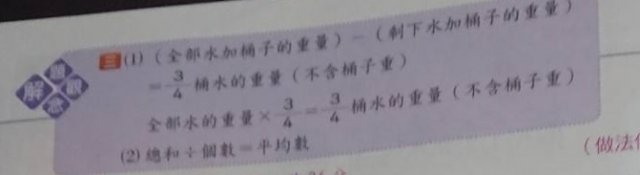 解題觀念
三(1)(全部水加桶子的重量)-(剩下水加桶子的重量)
=3/4桶水的重量(不含桶子重)
全部水的重量×3/4=3/4桶水的重量(不含桶子重)
(2)總和÷個數=平均數
(做法